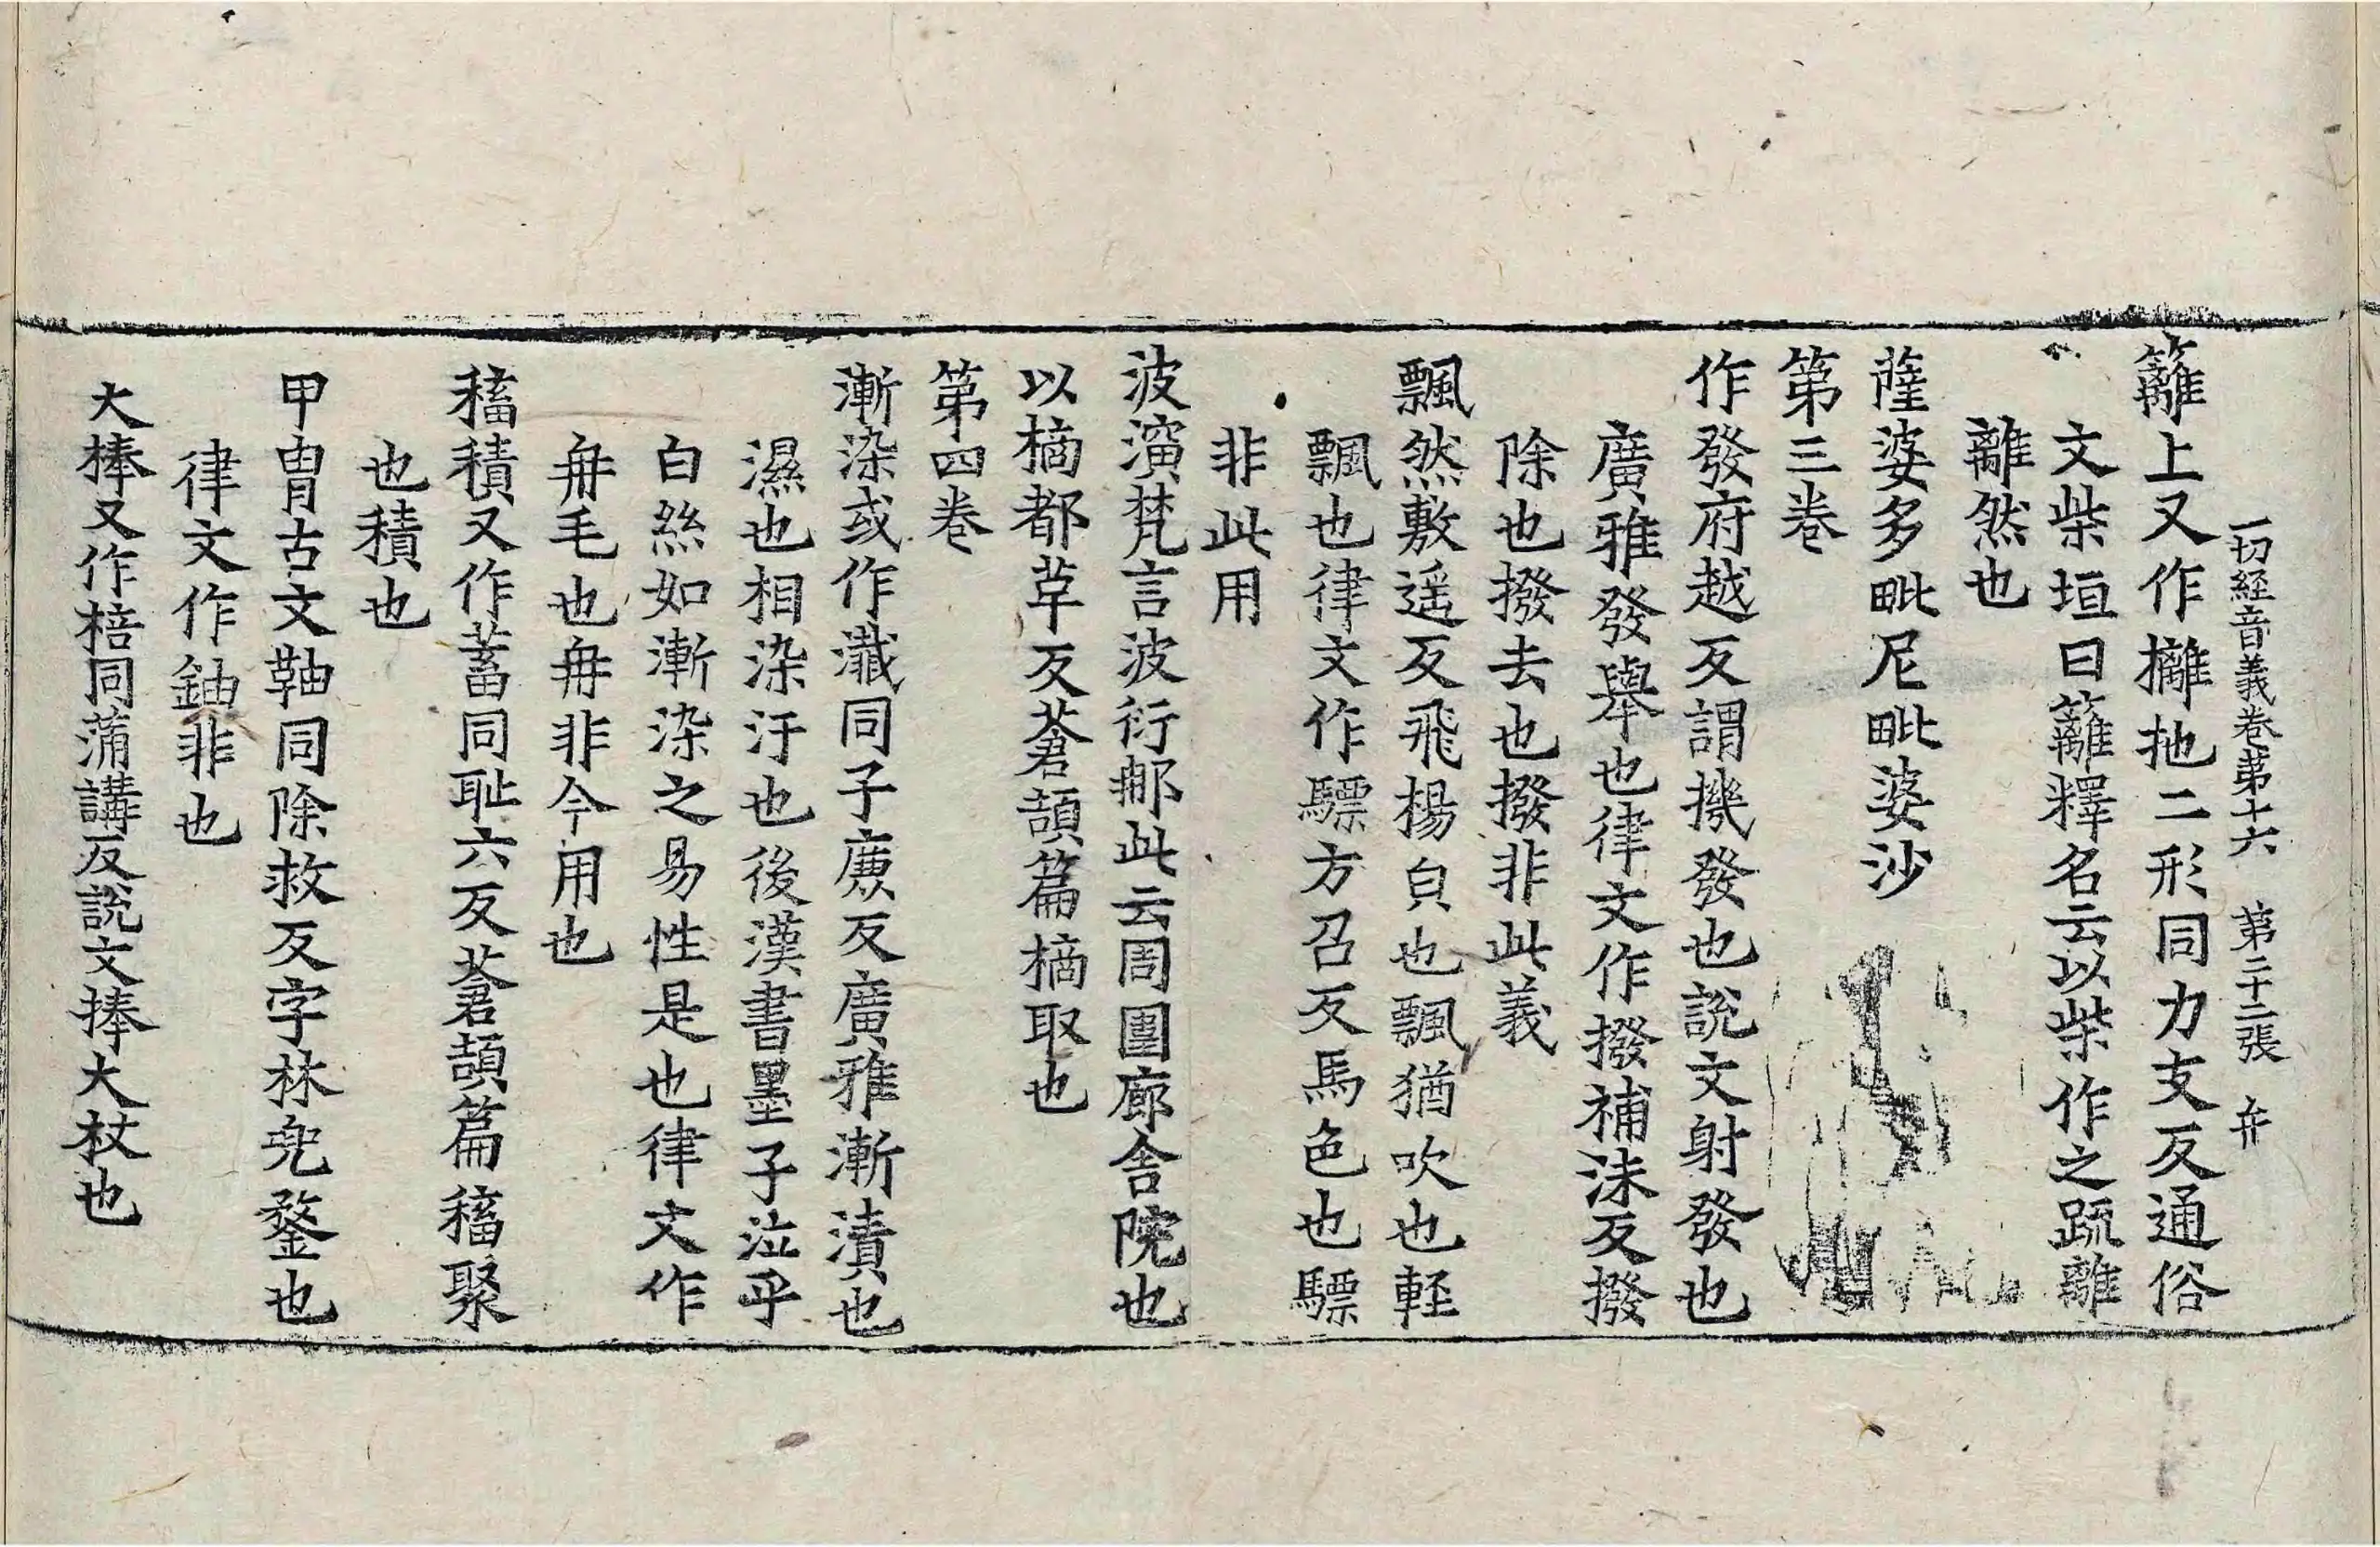 一切経音義卷第十六 第二十二張 弁
籬上又作㰚杝二形同力支反通俗
文柴垣曰籬釋名云以柴作之疏離
離然也
薩婆多毗尼毗婆沙
第三卷
作發府越反謂機發也說文射發也
廣雅發舉也律文作撥補沬反撥
除也撥去也撥非此義
飄然敷遥反飛揚皃也飄猶吹也輕
飄也律文作驃方召反馬色也驃
非此用
波演梵言波衍那此云周圍廊舍院也
以摘都革反蒼頡篇摘取也
第四卷
漸染或作瀸同子廉反廣雅漸漬也
濕也相染汙也後漢書墨子泣乎
白絲如漸染之易性是也律文作
毎毛也毎非今用也
稸積又作蓄同耻六反蒼頡篇稸聚
也積也
甲冑古文䩜同除救反字林兜鍪也
律文作鈾非也
大棒又作棓同蒲講反說文捧大杖也